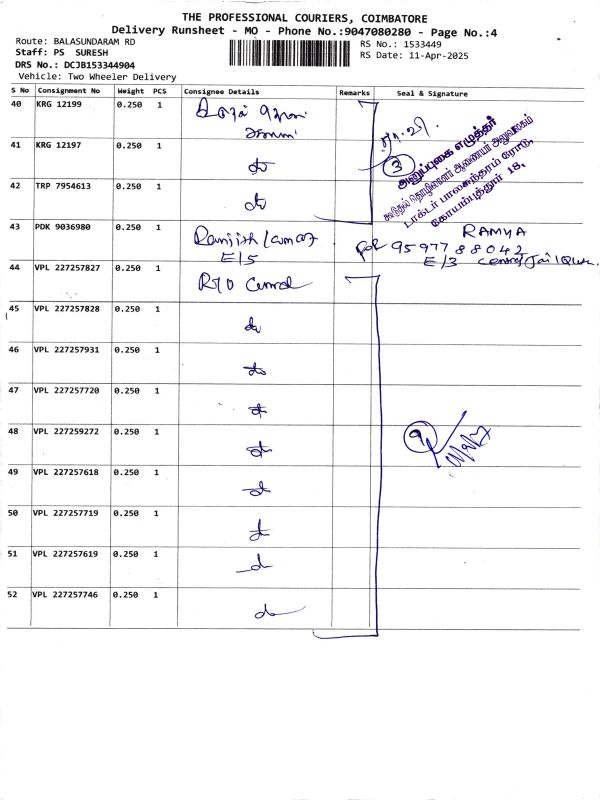 THE PROFESSIONAL COURIERS, COIMBATORE
Delivery Runsheet - MO - Phone No.:9047080280 - Page No.:4
Route: BALASUNDARAM RD
RS No.: 1533449
Staff: PS SURESH
RS Date: 11-Apr-2025
DRS No.: DCJB153344904
Vehicle: Two Wheeler Delivery
S No Consignment No Weight PCS Consignee Details Remarks Seal & Signature
40 KRG 12199 0.250 1
41 KRG 12197 0.250 1 do
3
அலுவலகம்
டாக்டர் பாலசுந்தரம் ரோடு,
கோயம்புத்தூர் 18,
42 TRP 7954613 0.250 1 do
43 PDK 9036980 0.250 1 Ranjith kumar
E/5
RAMYA
9597788042
E/3 Central Jail
44 VPL 227257827 0.250 1 RTO Central
45 VPL 227257828 0.250 1 do
46 VPL 227257931 0.250 1 do
47 VPL 227257720 0.250 1 do
48 VPL 227259272 0.250 1 do
9
49 VPL 227257618 0.250 1 do
50 VPL 227257719 0.250 1 do
51 VPL 227257619 0.250 1 do
52 VPL 227257746 0.250 1 do